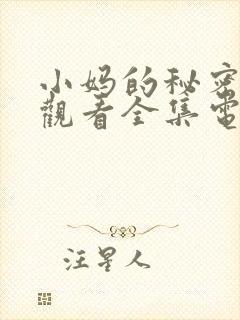 小妈的秘密
觀看全集電
汪星人